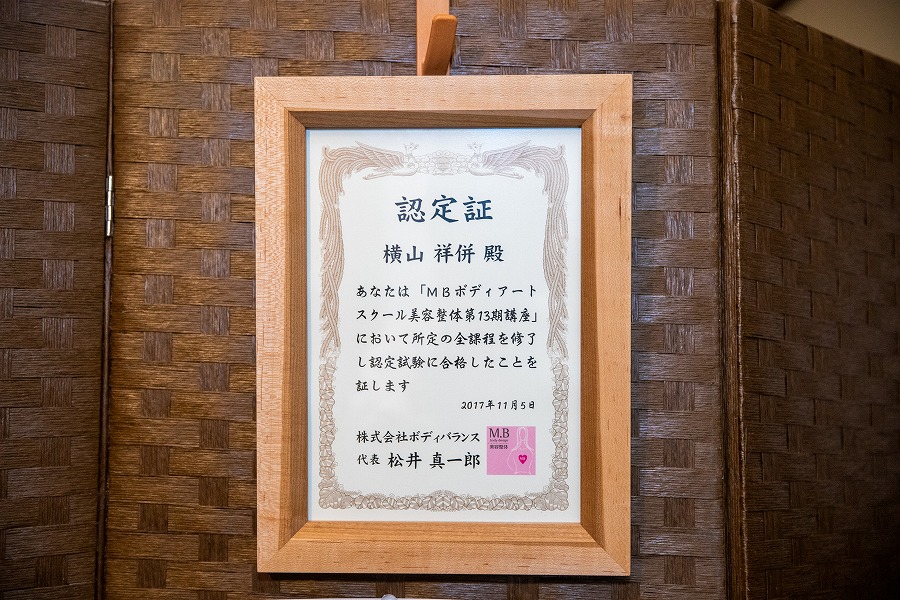 認定証
横山 祥併 殿
あなたは「MBボディアート
スクール美容整体第13期講座」
において所定の全課程を修了
し認定試験に合格したことを
証します
2017年11月5日
株式会社ボディバランス
代表 松井 真一郎
M.B
body design
美容整体